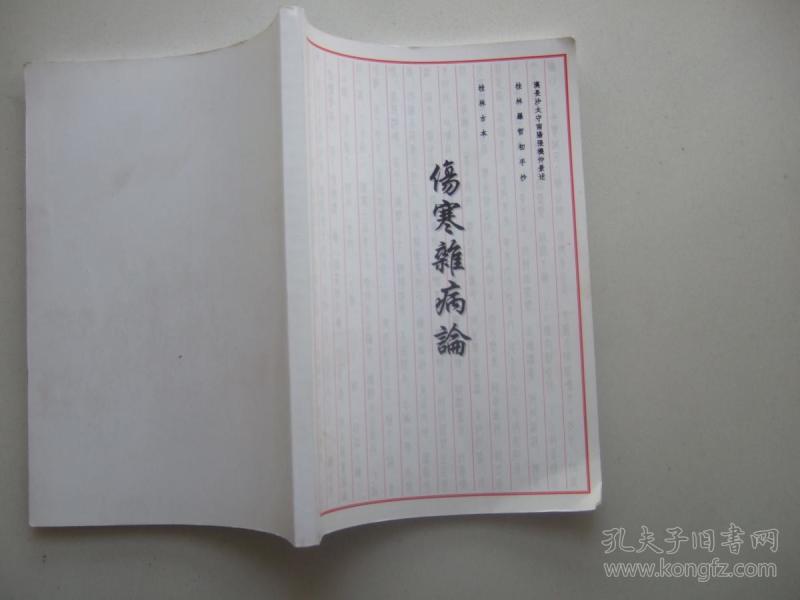 漢長沙太守南陽張機仲景述
桂林羅哲初手抄
桂林古本
傷寒雜病論
孔夫子旧书网
www.kongfz.com